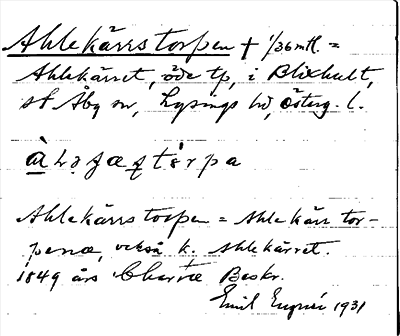 Ahlekärrstorpen + 1/36 mtl. =
Ahlekärret, öde tp, i Blixhult,
st Åby sn, Lysings hd, Österg. l.
Ahlekärrstorpen = Ahlekärr tor-
penæ, också k. Ahlekärret.
1849 års Charta Beskr.
Emil Engnér 1931